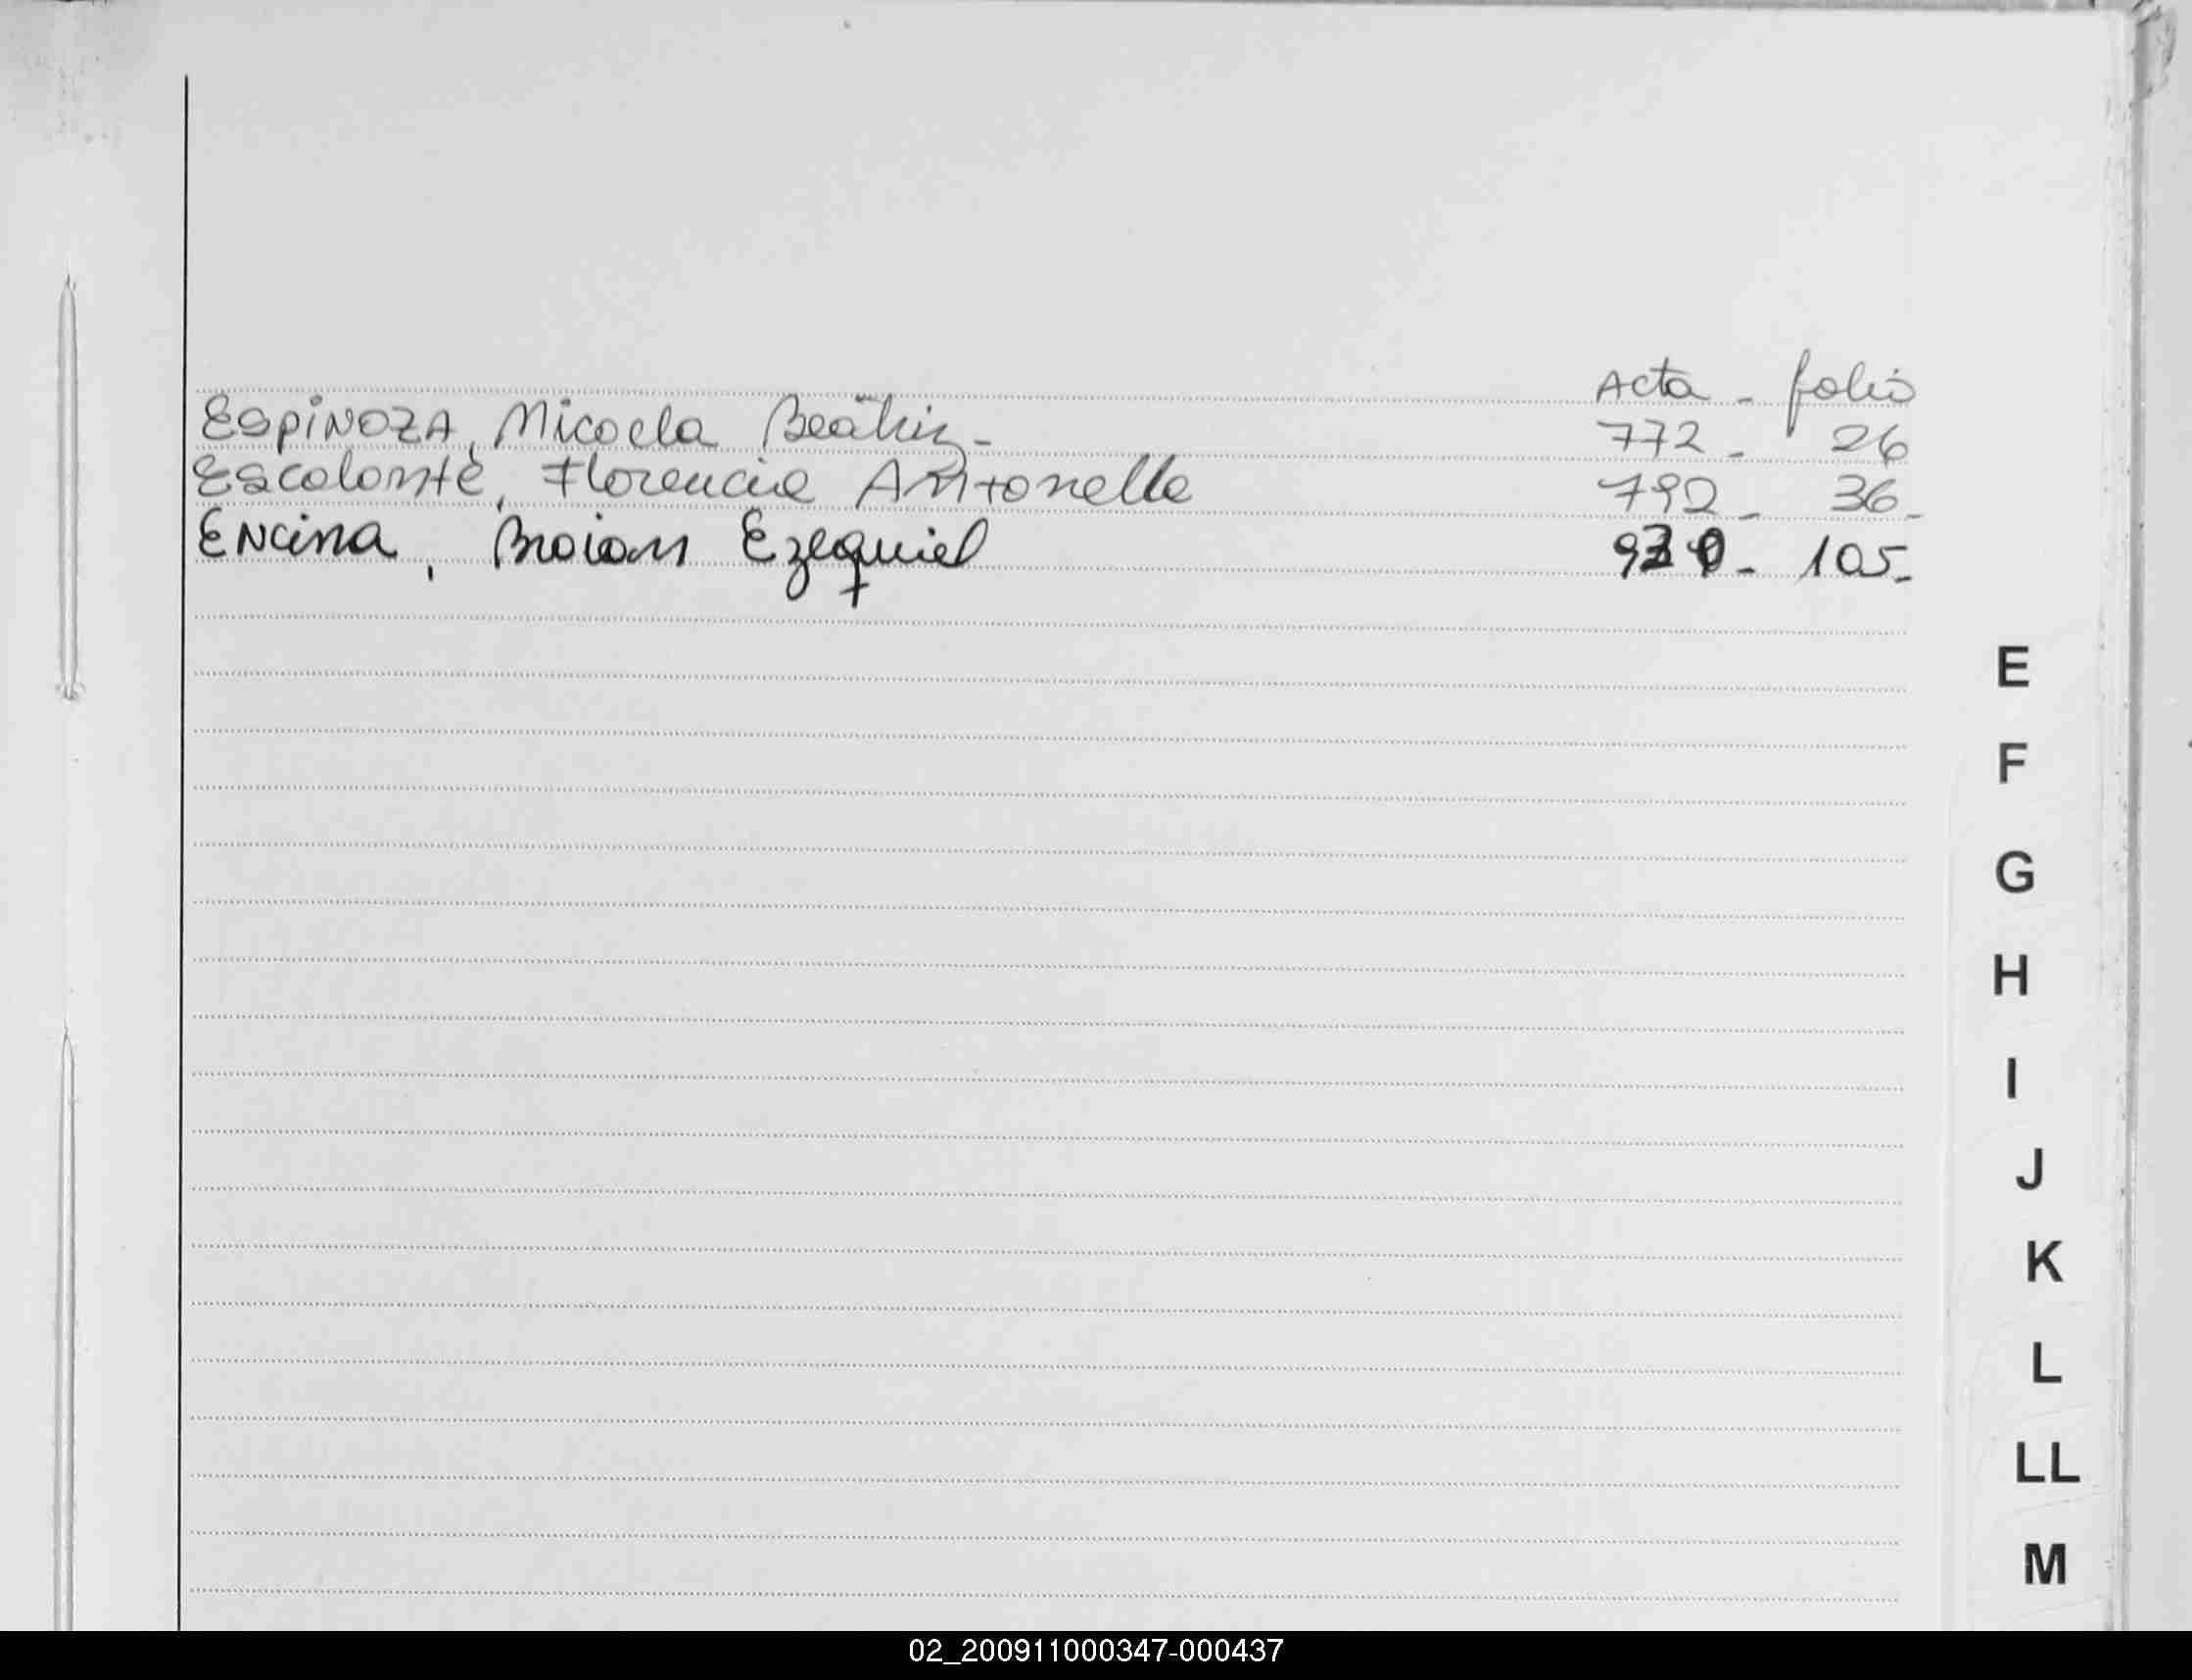 Acta - folio
ESPINOZA, Micaela Beatriz - 772 - 26
Escalante, Florencia Antonella 792 - 36 -
Encina, Braian Ezequiel 930 - 105 -
E
F
G
H
I
J
K
L
LL
M
02_200911000347-000437